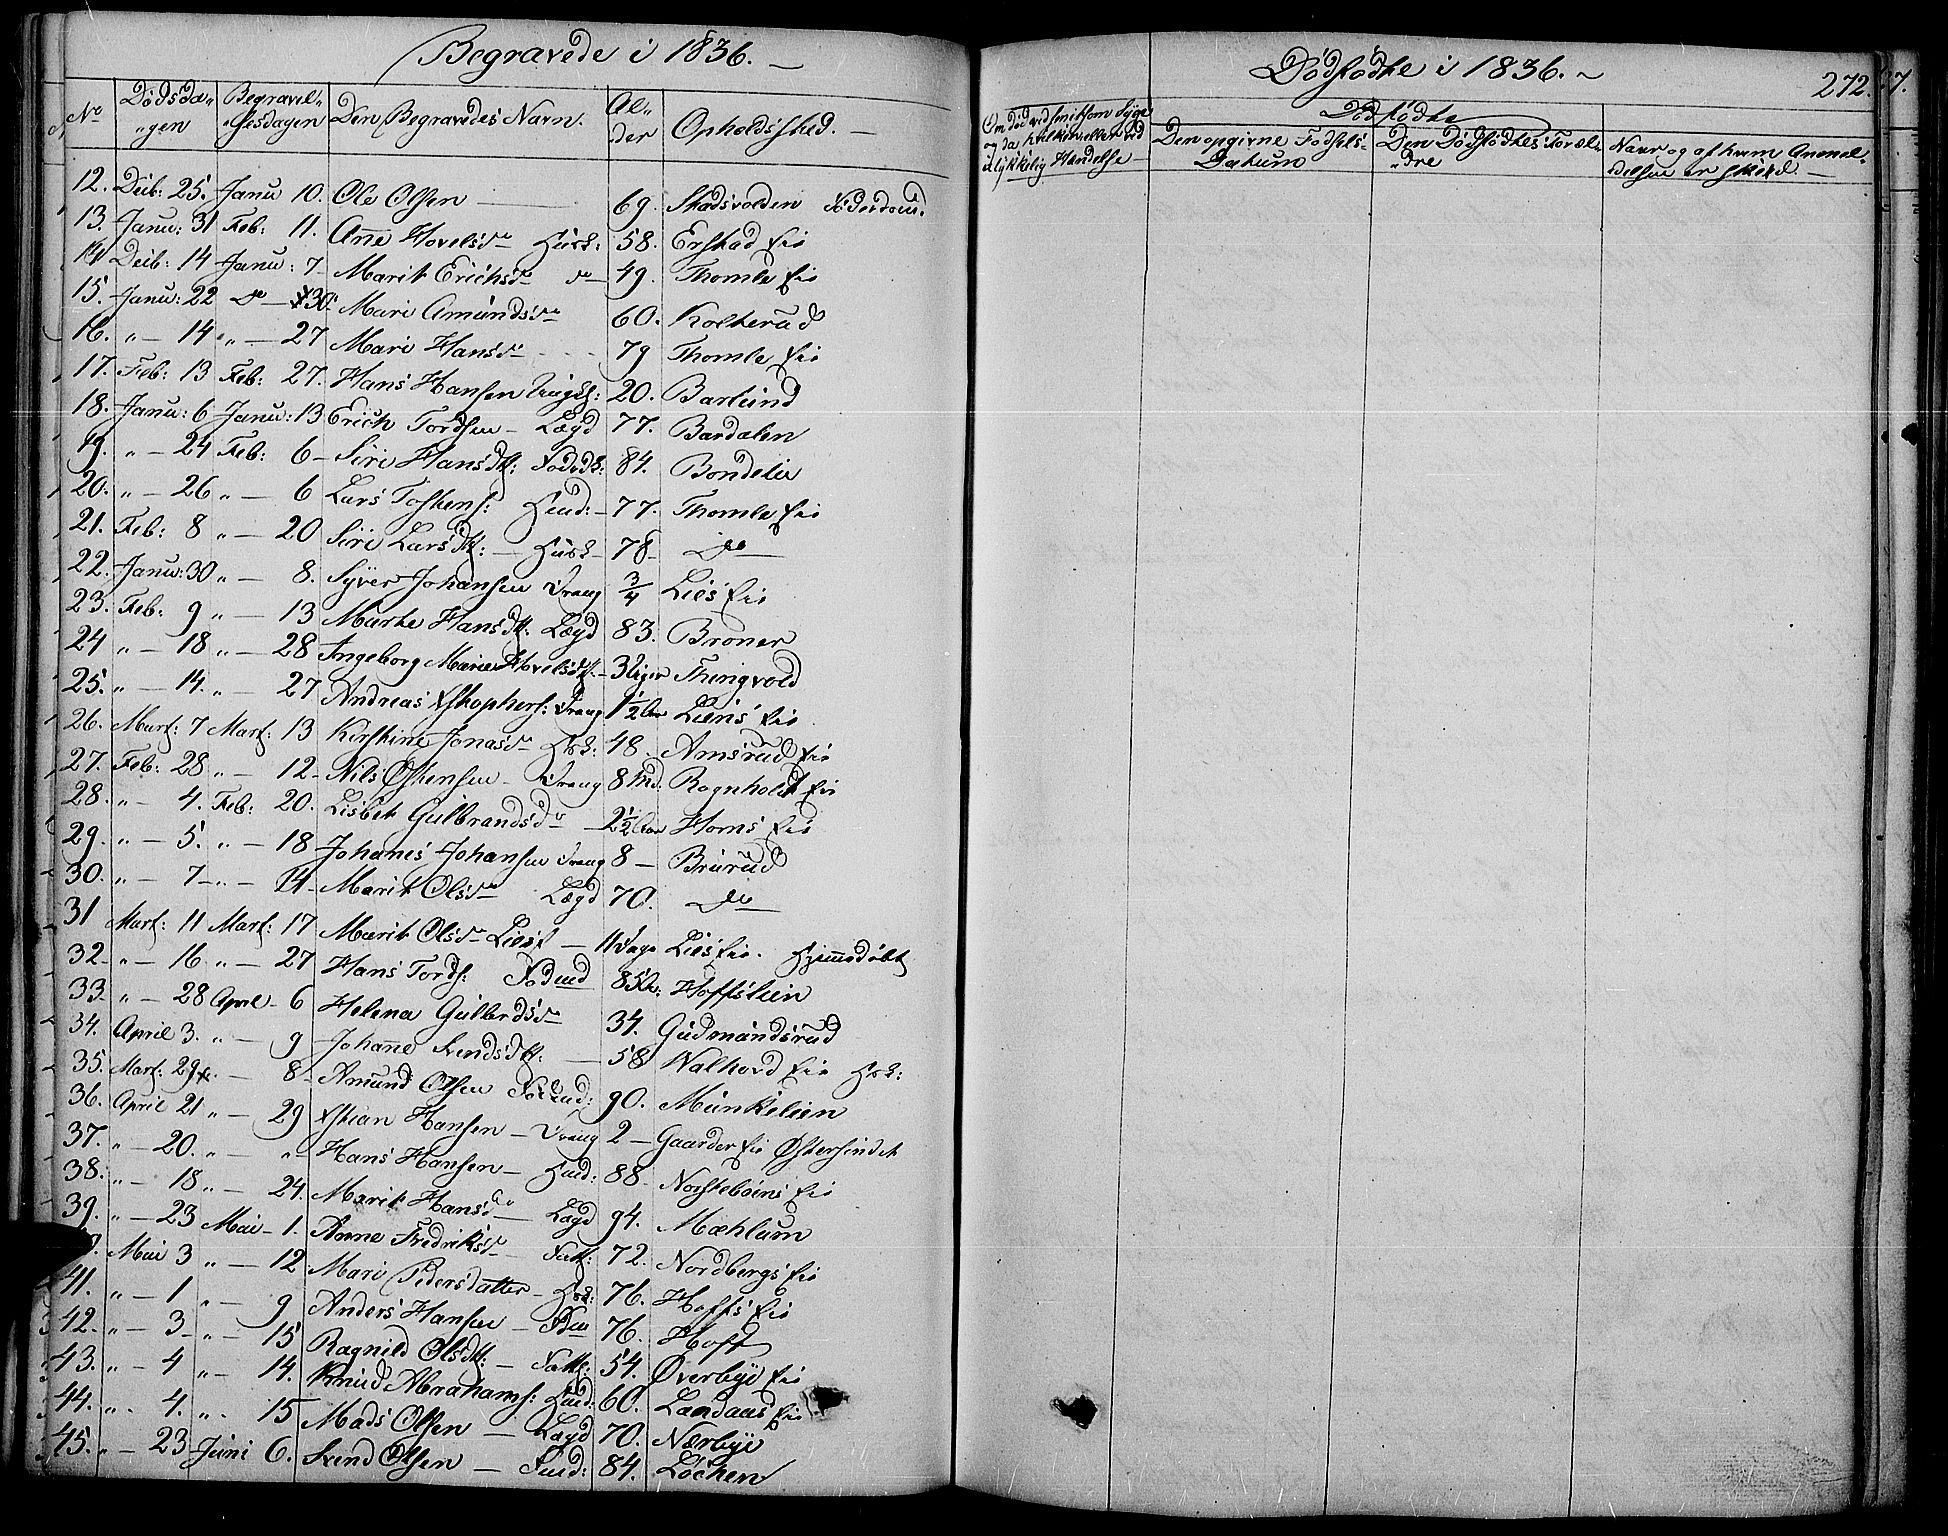 Begravede i 1836. —
No Dødsda„ „gen Begravel„ „sesdagen Den Begravedes Navn. Al„ der Opholdssted. —
12. Decb: 25. Janu 10. Ole Olsen — 69. Skadsvolden
13. Janu: 31 Feb: 11. Anne Hovelsdr 58. Erstad Eie
14 Decb: 14 Janu: 7 — Marit Erichsdr do — 49. Thomle Eie
15. Janu: 22 do — 30. Mari Amundsdr 60. Kolterud
16. „ — 14 „ — 27 Mari Hansdr 79 Thomle Eie
17. Feb: 13 Feb: 27. Hans Hansen 20. Barlund
18. Janu: 6 Janu: 13 Erich Tordsen — Lægd 77. Bardalen
19. „ — 24 Feb: 6 — Siri Hansdtt: 84. Bondelie
20. „ — 26 „ — 6 Lars 77. Thomle Eie
21. Feb: 8 „ — 20 Siri Larsdtt: — 78 — do —
22. Janu: 30 „ — 8. Syver Johansen Dreng 3/4 Lies Eie
23. Feb: 9 „ — 13 Marte Hansdtt: Lægd 83. Broner
24 „ — 18 „ — 28 Ingeborg Marie Hovelsdtt. — 3 Uger Thingvold
25. „ — 14. „ — 27 Andreas Xstophers: Dreng 1 1/2 Aar Liens Eie
26. Marts: 7 Marts: 13 Kirstine Jonasdr 48. Amsrud Eie
27. Feb: 28 „ — 12 — Nils Østensen — Dreng 8 Md. Rognholdt Eie
28. „ — 4. Feb: 20. Lisbet Gulbrandsdr — 2 1/2 Aar Homs Eie
29. „ — 5. „ — 18 Johanes Johansen Dreng 8 — Brurud
30. „ — 7 — „ — 14 — Marit Olsdr Lægd 70. do —
31 Marts: 11 Marts: 17 Marit Olsdr Lies — 11 Dage Lies Eie. Hjemdøbt
32. „ — 16 „ — 27 Hans Tords: 85 Hoffslien
33. „ — 28 April — 6 Helena Gulbrdsdr 34. Gudmundsrud
34. April 3. „ — 9 Johanne Svendsdtt: — 58 Walhovd Eie
35. Marts: 29 — 8 — Amund Olsen 90. Munkelien
36. April 21 „ — 29 Xstian Hansen — Dreng 2 — Gaarder Eie Østersindet
37. „ — 20. „ — „ — Hans Hansen — 88. Norsteboens Eie
38. „ — 18 „ — 24. Marit Hansdr — Lægd 94. Mæhlum
39. „ — 23 Mai — 1. Anne Fredriksdr — Fatt: 72. Nordbergs Eie
Mai 3 „ — 12 Mari Pedersdatter — 76. Hoffs Eie
41. „ — 1 „ — 9 Anders Hansen — 76. Hoff
42. „ — 3 — „ — 15 Ragnild Olsdtt: — Fatt: 54. Øverbye Eie
43. „ — 4 „ — 14. Knud Abrahams: 60. Landaas Eie
44. „ — 4. „ — 15 Mads Olsen — Lægd 70. Nærbye
45. „ — 23 Juni 6. Svend Olsen — 84. Løchen
Dødfødte i 1836. ~
272.
Om død ved smitsom Syge og da hvilken eller ved ulykkelig Hændelse —
Dødfødte
Den opgivne Fødsels- Datum
Den Dødfødtes Foræl„ „dre
Naar og af hvem Anmel„ delsen er skeed. —